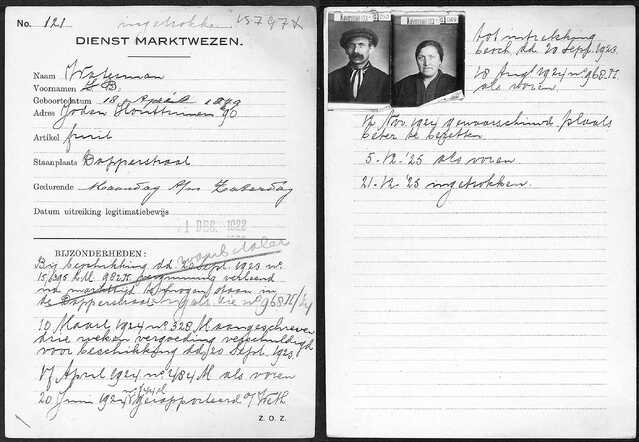 No. 121 ingetrokken 15797 X
DIENST MARKTWEZEN.
Naam Waterman
Voornamen L.B.
Geboortedatum 18 April 1899
Adres Joden Houttuinen 90
Artikel fruit
Staanplaats Dapperstraat
Gedurende Maandag t/m Zaterdag
Datum uitreiking legitimatiebewijs
1 DEC. 1922
BIJZONDERHEDEN:
Bij beschikking dd. 20 Sept. 1923 no.
vergunning verleend
na markttijd te mogen staan in
de Dapperstraat no 968 M/24
10 Maart 1924 no 328 M aangeschreven
drie weken vergoeding verschuldigd
voor beschikking dd. 20 Sept. 1923
17 April 1924 no 484 M als voren
20 Juni 1924 gerapporteerd a/ Weth
Z. O. Z.
tot intrekking
besch. dd 20 Sept. 1923.
18 Aug 1924 no 968 M.
als voren.
12 Nov 1924 gewaarschuwd plaats
beter te bezetten
5-12-'25 als voren
21-12-'25 ingetrokken.